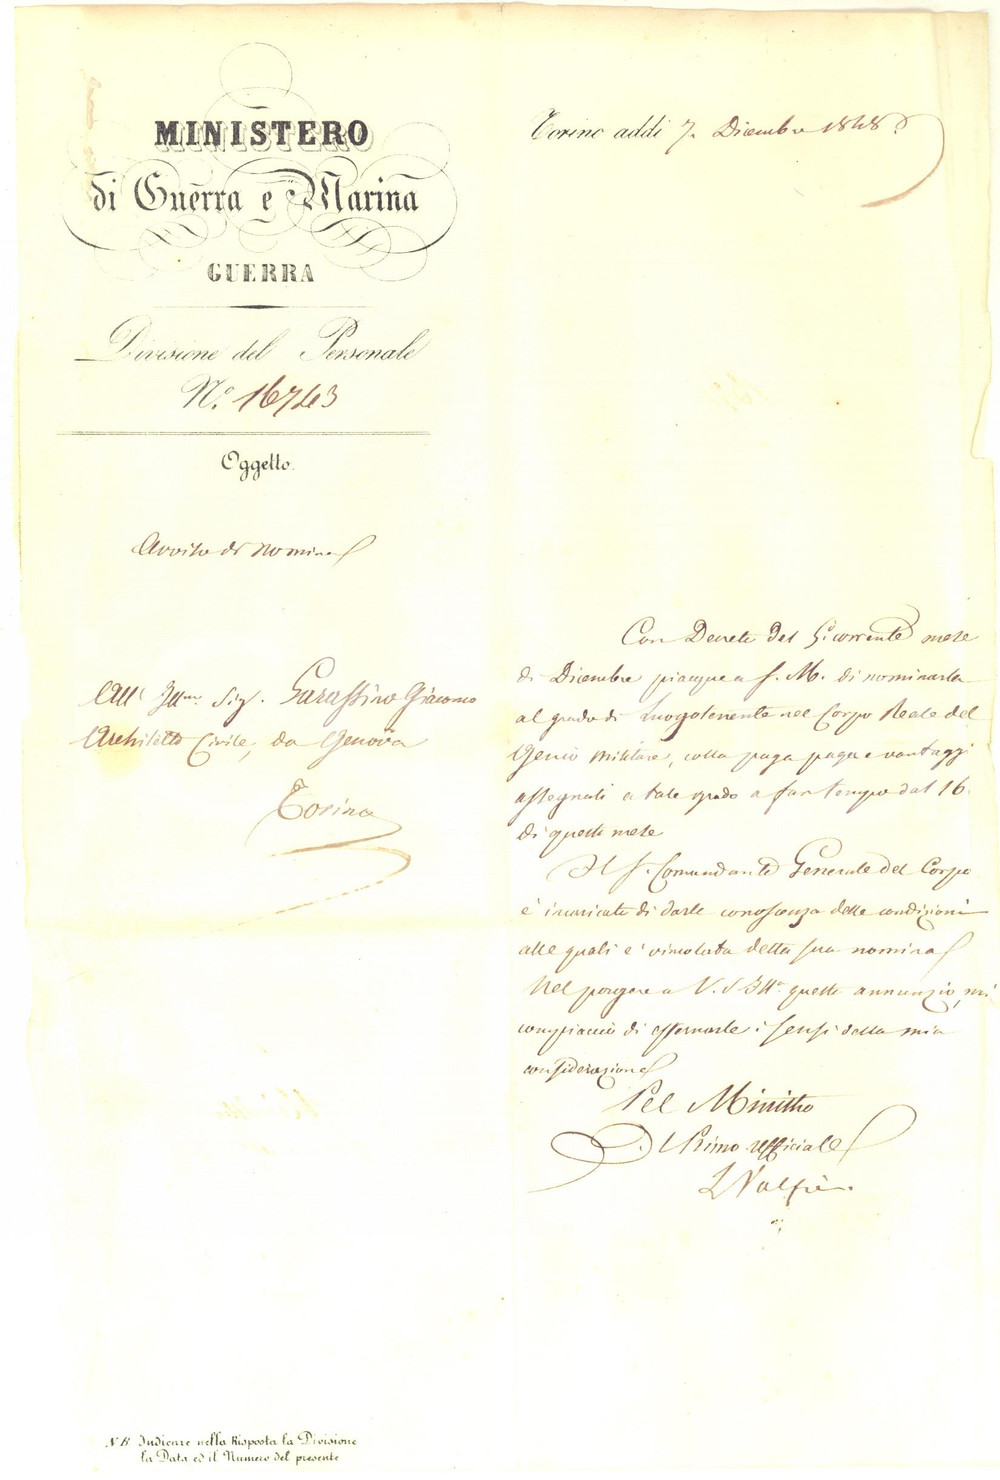 MINISTERO
di Guerra e Marina
GUERRA
Divisione del Personale
N.° 16743
Oggetto.
Avviso di nomina
All' Ill.mo Sig. Garassino Giacomo
Architetto Civile, da Genova
Torino
Torino addì 7. Dicembre 1848.
Con Decreto del 5. corrente mese
di Dicembre piacque a S. M. di nominarla
al grado di Luogotenente nel Corpo Reale del
Genio Militare, colla paga paga e vantaggi
assegnati a tale grado a far tempo dal 16.
di questo mese
Il S. Comandante Generale del Corpo
è incaricato di darle conoscenza delle condizioni
alle quali è vincolata detta sua nomina
Nel porgere a V. S. Ill.a questo annunzio, mi
compiaccio di esternarle i sensi della mia
considerazione
Pel Ministro
Il Primo Uffiziale
NB Indicare nella Risposta la Divisione
la Data ed il Numero del presente